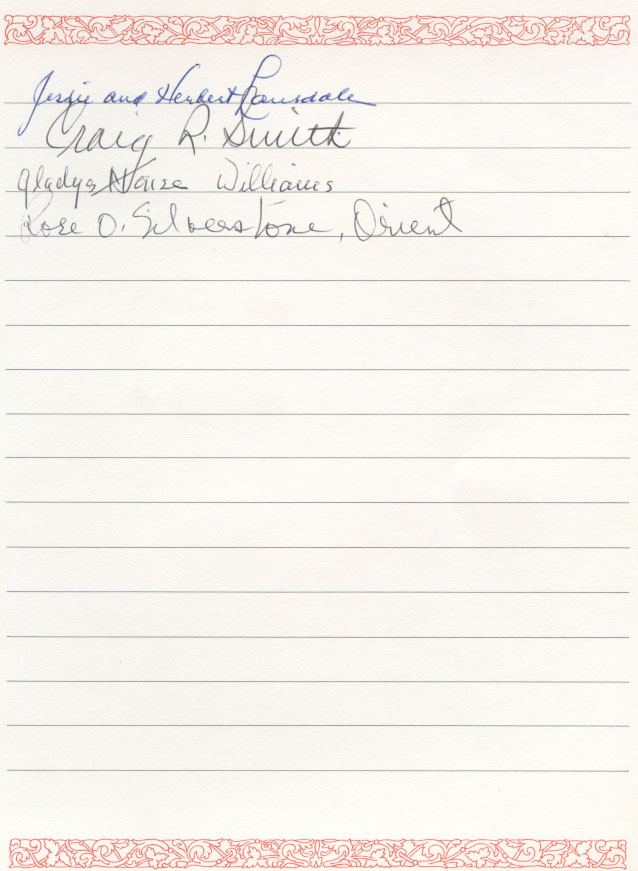 Jessie and Herbert Ransdale
Craig R. Smith
Gladys Williams
Rose O. Silverstone, Orient